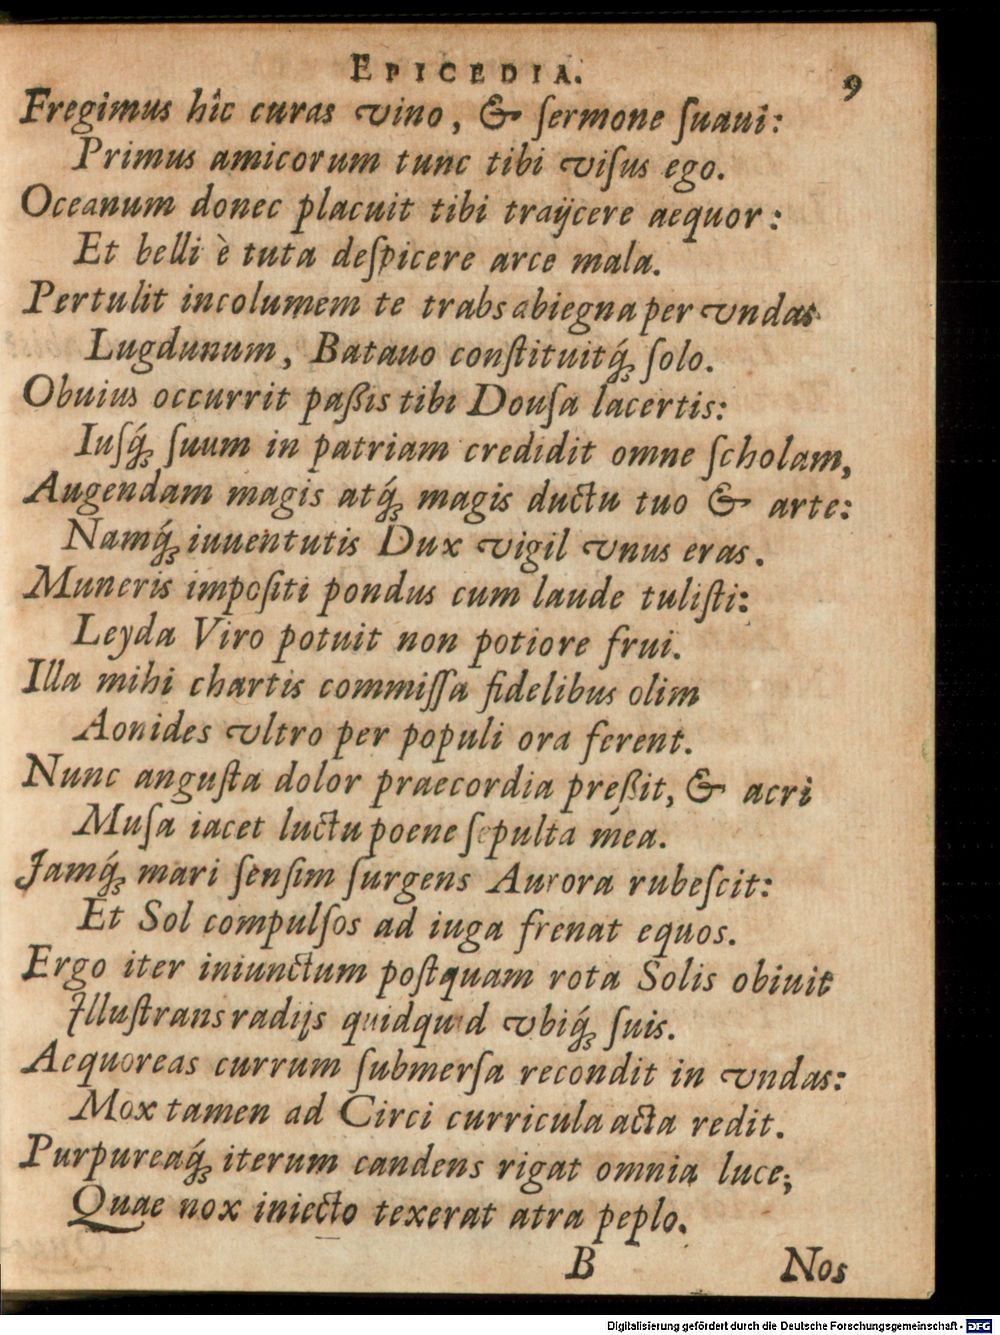 EPICEDIA. 9
Fregimus hîc curas vino, & ſermone ſuaui:
Primus amicorum tunc tibi viſus ego.
Oceanum donec placuit tibi traijcere aequor:
Et belli è tuta deſpicere arce mala.
Pertulit incolumem te trabs abiegna per vndas
Lugdunum, Batauo conſtituitq́ꝫ ſolo.
Obuius occurrit paßis tibi Douſa lacertis:
Iuſq́ꝫ ſuum in patriam credidit omne ſcholam,
Augendam magis atq́ꝫ magis ductu tuo & arte:
Namq́ꝫ iuuentutis Dux vigil vnus eras.
Muneris impoſiti pondus cum laude tuliſti:
Leyda Viro potuit non potiore frui.
Illa mihi chartis commiſſa fidelibus olim
Aonides vltro per populi ora ferent.
Nunc anguſta dolor praecordia preßit, & acri
Muſa iacet luctu poene ſepulta mea.
Jamq́ꝫ mari ſenſim ſurgens Aurora rubeſcit:
Et Sol compulſos ad iuga frenat equos.
Ergo iter iniunctum poſtquam rota Solis obiuit
Jlluſtrans radijs quidquid vbiq́ꝫ ſuis.
Aequoreas currum ſubmerſa recondit in vndas:
Mox tamen ad Circi curricula acta redit.
Purpureaq́ꝫ iterum candens rigat omnia luce;
Quae nox iniecto texerat atra peplo.
B Nos
Digitalisierung gefördert durch die Deutsche Forschungsgemeinschaft - DFG